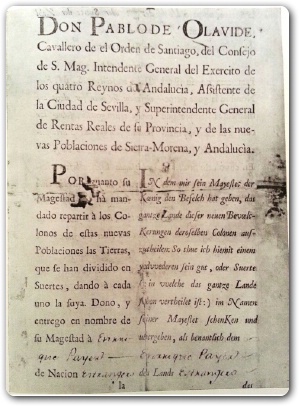 DON PABLO DE OLAVIDE,
Cavallero de el Orden de Santiago, del Consejo
de S. Mag. Intendente General del Exercito de
los quatro Reynos de Andalucia, Asistente de
la Ciudad de Sevilla, y Superintendente General
de Rentas Reales de su Provincia, y de las nue-
vas Poblaciones de Sierra-Morena, y Andalucia.
POR quanto su
Magestad ha man-
dado repartir à los Co-
lonos de estas nuevas
Poblaciones las Tierras,
que se han dividido en
Suertes, dando à cada
uno la suya. Dono, y
entrego en nombre de
su Magestad à
que Payer
de Nacion estrangero
la
IN dem mir sein Mayestet der
Kænig den Befehch hat geben, das
gantze Lande dieser neuen Bevelk-
Kerungen derselben Colonen aus-
zutheilen. So thue ich hiemit einem
sein gut, oder Suerte
in welche das gantze Lande
vertheilet ist:) im Namen
seiner Mayestet schinKen und
ubergeben, als benantlich dem
que Payer
des Lands estrangero
des